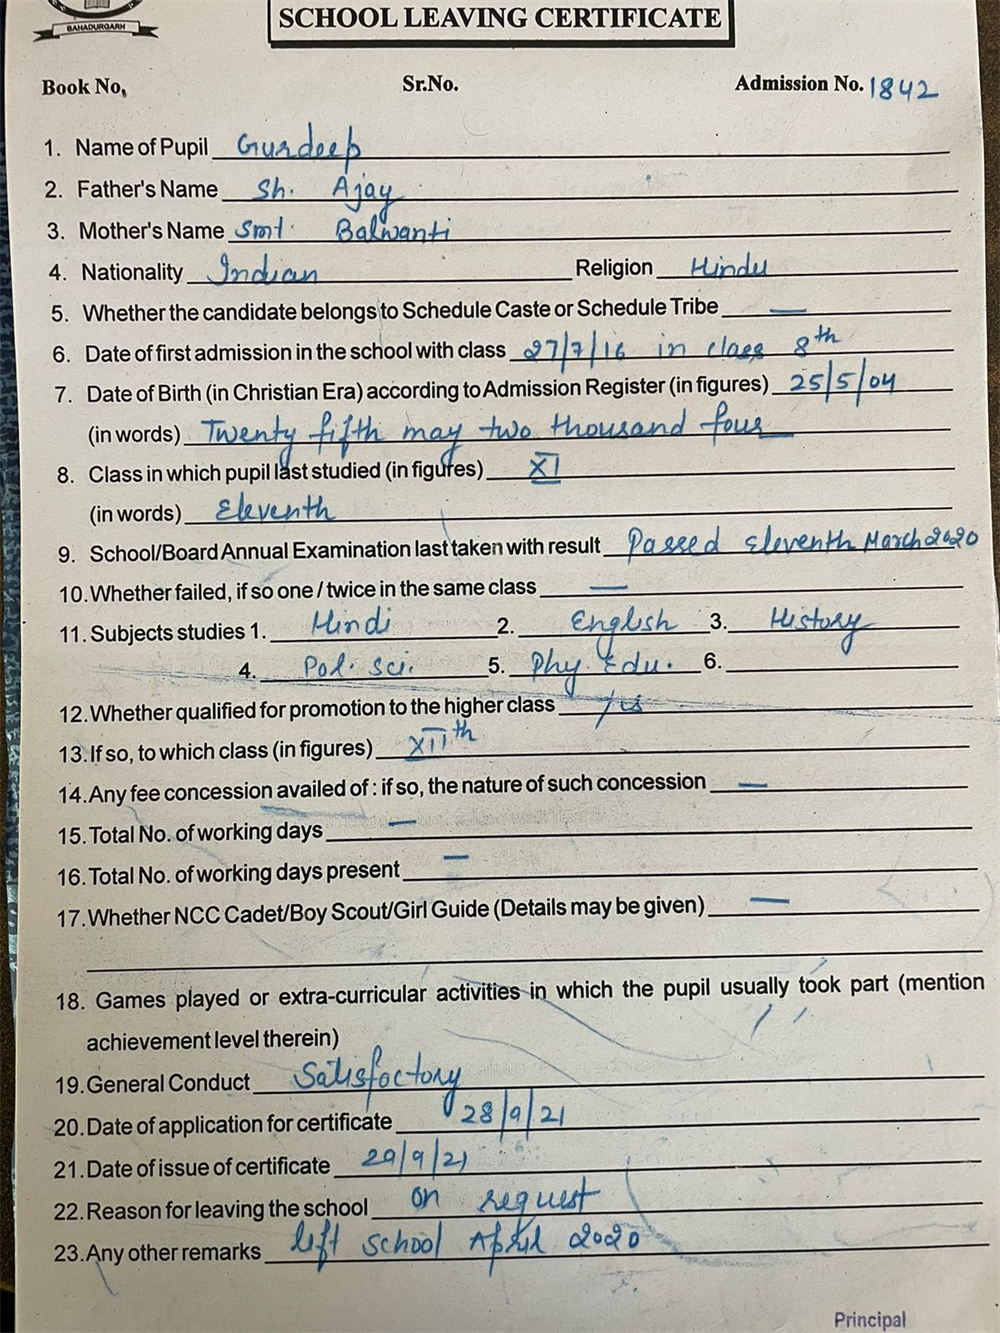 BAHADURGARH
SCHOOL LEAVING CERTIFICATE
Book No. Sr.No. Admission No. 1842
1. Name of Pupil Gurdeep
2. Father's Name Sh. Ajay
3. Mother's Name Smt. Balwanti
4. Nationality Indian Religion Hindu
5. Whether the candidate belongs to Schedule Caste or Schedule Tribe —
6. Date of first admission in the school with class 27/7/16 in class 8th
7. Date of Birth (in Christian Era) according to Admission Register (in figures) 25/5/04
(in words) Twenty fifth may two thousand four
8. Class in which pupil last studied (in figures) XI
(in words) Eleventh
9. School/Board Annual Examination last taken with result Passed eleventh March 2020
10. Whether failed, if so one / twice in the same class —
11. Subjects studies 1. Hindi 2. English 3. History
4. Pol. sci. 5. Phy. Edu. 6.
12. Whether qualified for promotion to the higher class yes
13. If so, to which class (in figures) XIIth
14. Any fee concession availed of : if so, the nature of such concession —
15. Total No. of working days —
16. Total No. of working days present —
17. Whether NCC Cadet/Boy Scout/Girl Guide (Details may be given) —
18. Games played or extra-curricular activities in which the pupil usually took part (mention
achievement level therein)
19. General Conduct Satisfactory
20. Date of application for certificate 28/9/21
21. Date of issue of certificate 29/9/21
22. Reason for leaving the school on request
23. Any other remarks left school April 2020
Principal